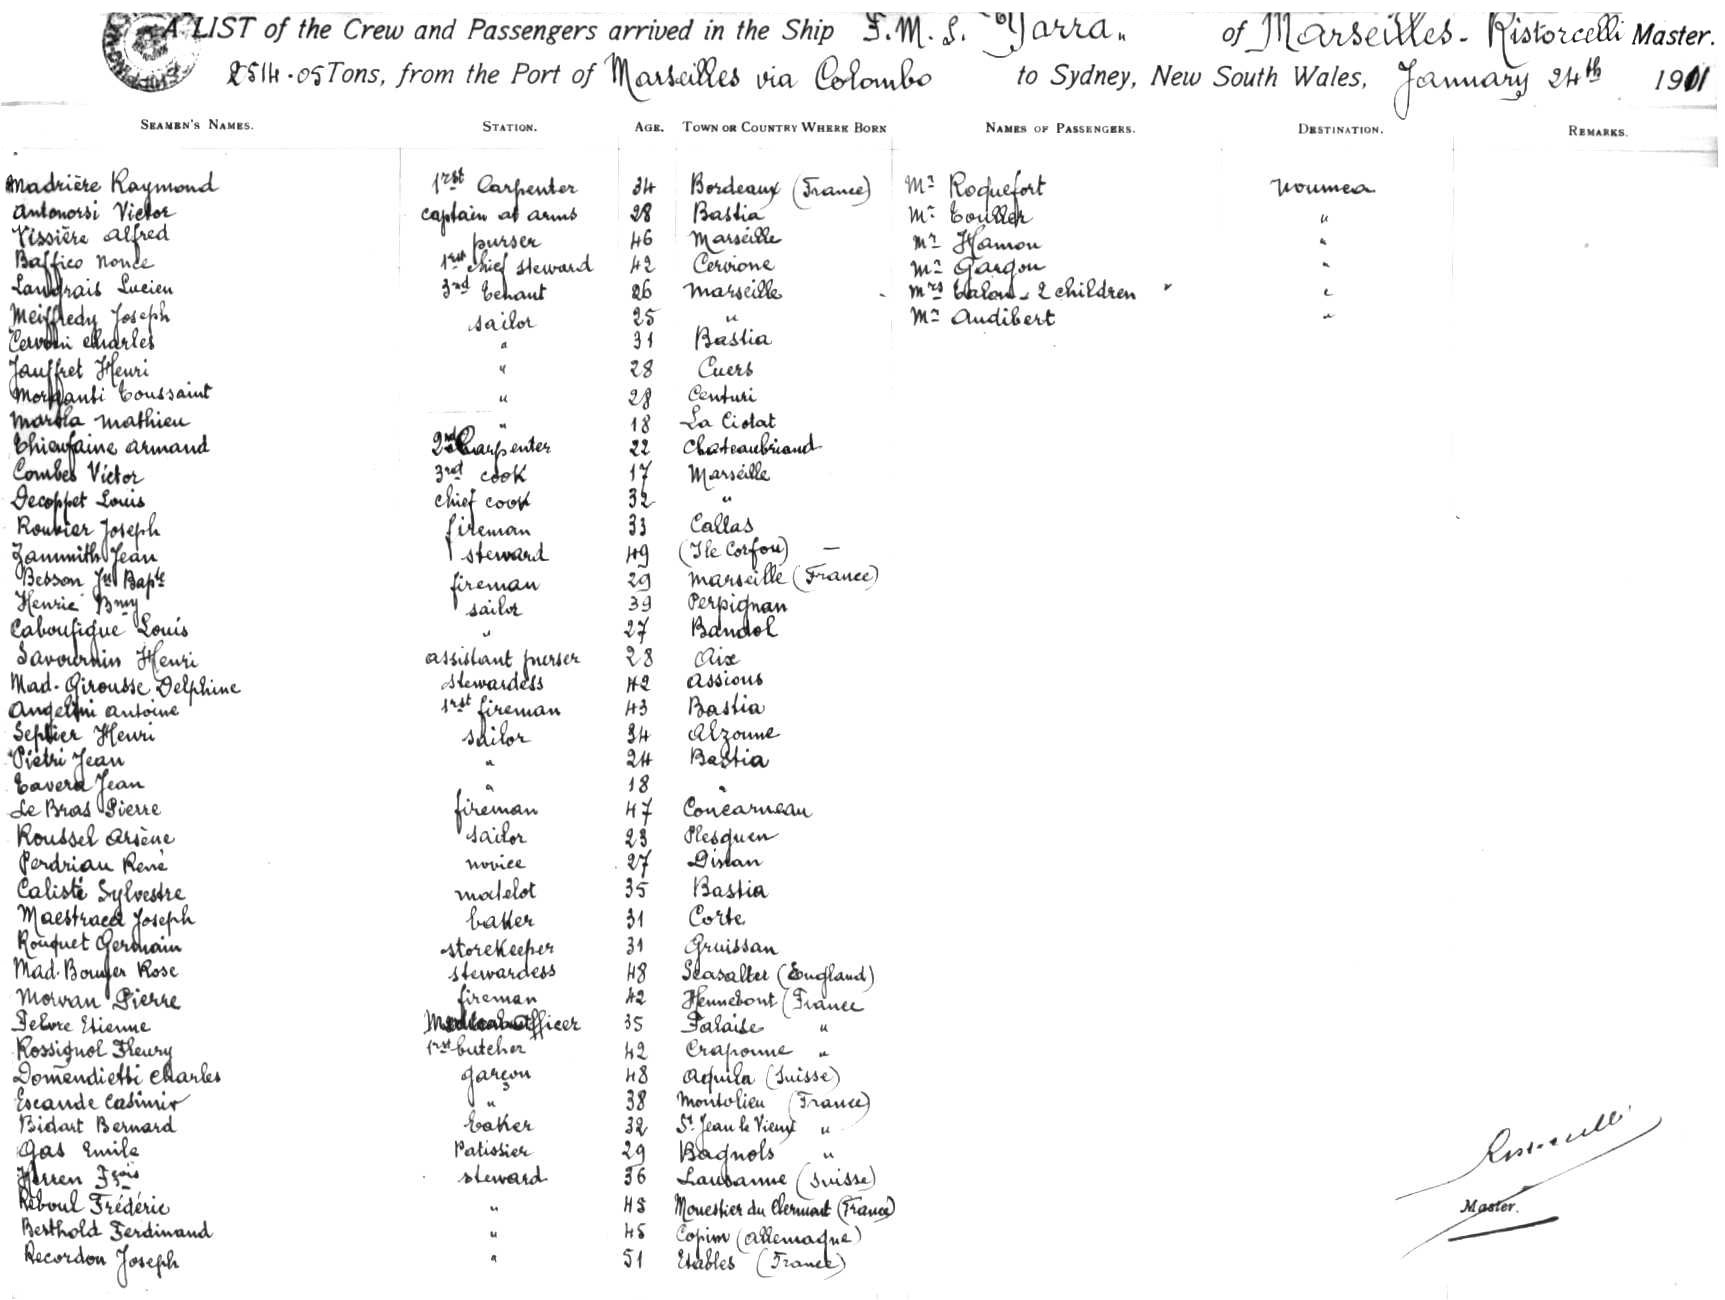 A LIST of the Crew and Passengers arrived in the Ship F.M.S. "Yarra" of Marseilles - Ristorcelli Master.
2514.05 Tons, from the Port of Marseilles via Colombo to Sydney, New South Wales, January 24th 1901
SEAMEN'S NAMES. STATION. AGE. TOWN OR COUNTRY WHERE BORN NAMES OF PASSENGERS. DESTINATION. REMARKS.
Madrière Raymond 1rst Carpenter 34 Bordeaux (France) Mr Roquefort Noumea
Antonorsi Victor captain at arms 28 Bastia Mr Toullier "
Vissière Alfred purser 46 Marseille Mr Hamon "
Baffico Nonce 1rst chief steward 42 Cervione Mr Garçon "
Langrais Lucien 3rd 26 Marseille Mrs Talon - 2 children " "
Meiffredy Joseph sailor 25 " Mr Audibert "
Cervoni Charles " 31 Bastia
Jauffret Henri " 28 Cuers
Morganti Toussaint " 28 Centuri
Mathieu " 18 La Ciotat
Thieufaine Armand 2nd Carpenter 22 Chateaubriand
Combes Victor 3rd cook 17 Marseille
Decoppet Louis chief cook 32 "
Rouvier Joseph fireman 33 Callas
Zammith Jean steward 49 (Ile Corfou) —
Besson Jn Bapte fireman 29 Marseille (France)
Henric Bmy sailor 39 Perpignan
Caboufigue Louis " 27 Bandol
Savournin Henri assistant purser 28 Aix
Mad. Girousse Delphine stewardess 42 Assions
Angelini Antoine 1rst fireman 43 Bastia
Septier Henri sailor 34 Alzonne
Pietri Jean " 24 Bastia
Tavera Jean " 18 "
Le Bras Pierre fireman 47 Concarneau
Roussel Arsène sailor 23 Plesguen
Perdriau René novice 27 Dinan
Calisté Sylvestre matelot 35 Bastia
Maestracci Joseph baker 31 Corte
Rouquet Germain storekeeper 31 Gruissan
Mad. Rose stewardess 48 Seasalter (England)
Morvan Pierre fireman 42 Hennebont (France
Etienne Medical Officer 35 Falaise "
Rossignol Fleury 1rst butcher 42 Craponne "
Domendietti Charles garçon 48 Aquila (Suisse)
Escande Casimir " 38 Montolieu (France)
Bidart Bernard baker 32 St Jean le Vieux "
Gas Emile Patissier 29 Bagnols "
Herren Fçois steward 36 Lausanne (Suisse)
Reboul Frédéric " 45 Monestier du Clermont (France)
Berthold Ferdinand " 45 Copim (Allemagne)
Recordon Joseph " 51 Etables (France)
Ristorcelli
Master.